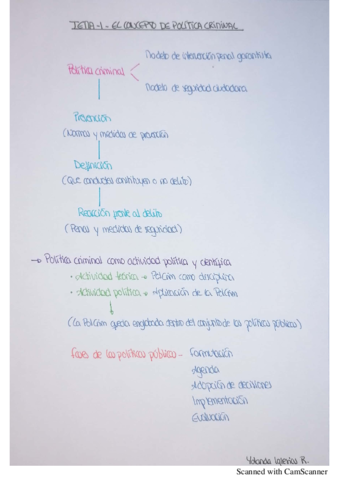 TEMA-1- EL CONCEPTO DE POLÍTICA CRIMINAL
Modelo de intervención penal garantista
Política criminal
Modelo de seguridad ciudadana
Prevención
(Normas y medidas de prevención
Definición
(Que conductas constituyen o no delito)
Reacción frente al delito
(Penas y medidas de seguridad)
→ Política criminal como actividad política y científica
• Actividad teórica → PolCrim como disciplina
• Actividad política → Aplicación de la PolCrim
(La PolCrim queda englobada dentro del conjunto de las políticas públicas)
Fases de las políticas públicas - Formulación
Agenda
Adopción de decisiones
Implementación
Evaluación
Yolanda Iglesias R.
Scanned with CamScanner